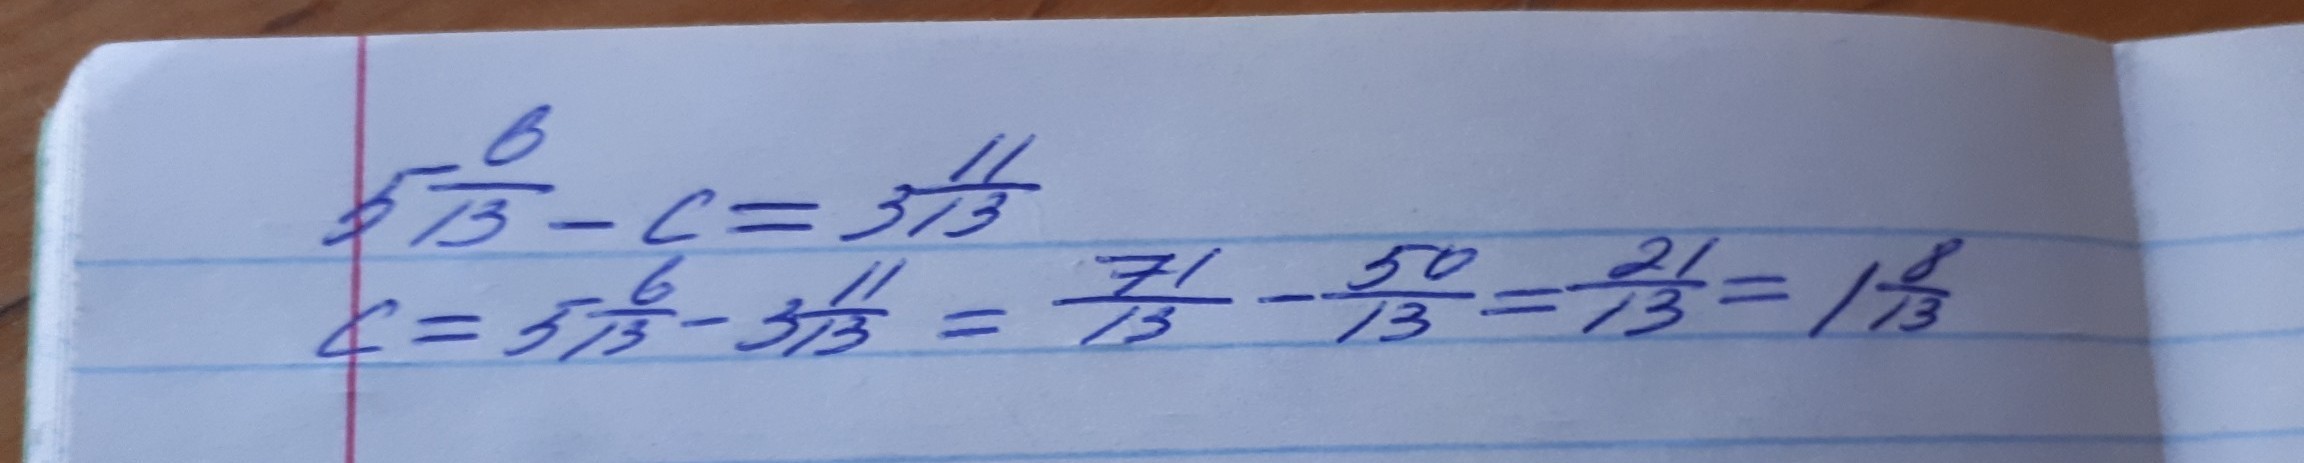 5 6/13 - c = 3 11/13
c = 5 6/13 - 3 11/13 = 71/13 - 50/13 = 21/13 = 1 8/13